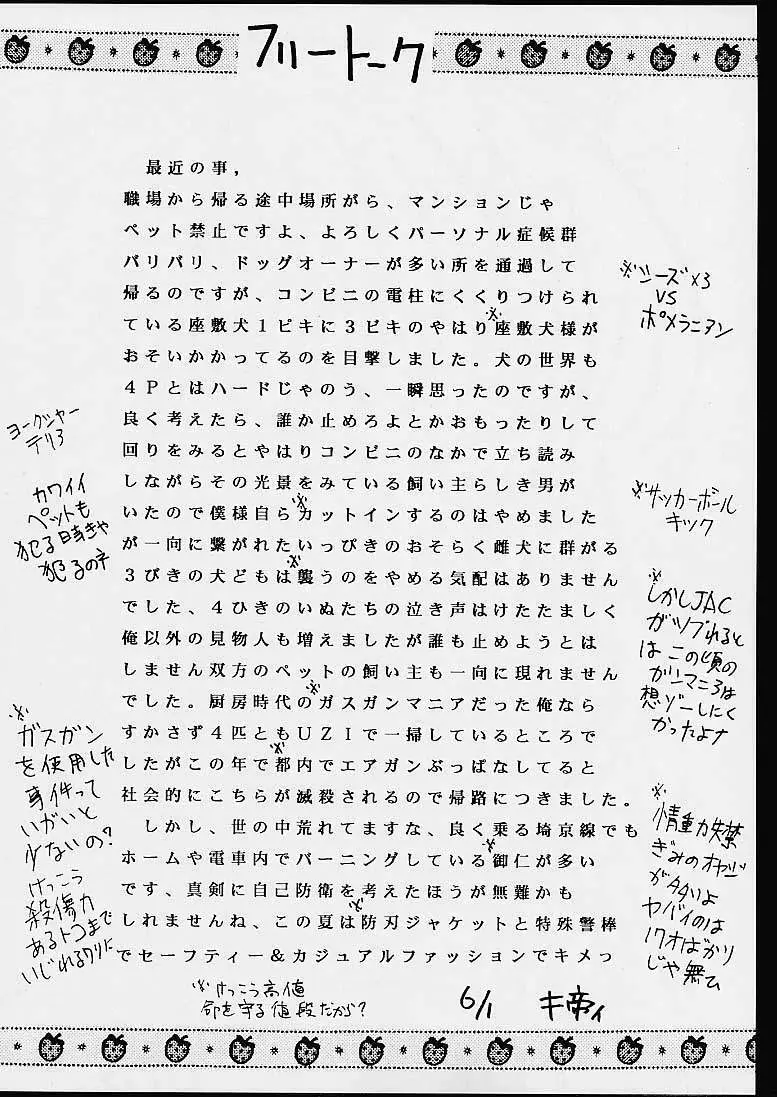 フリートーク
最近の事,
職場から帰る途中場所がら、マンションじゃ
ペット禁止ですよ、よろしくパーソナル症候群
バリバリ、ドッグオーナーが多い所を通過して
帰るのですが、コンビニの電柱にくくりつけられ
ている座敷犬1ピキに3ビキのやはり※座敷犬様が
おそいかかってるのを目撃しました。犬の世界も
4Pとはハードじゃのう、一瞬思ったのですが、
良く考えたら、誰か止めろよとかおもったりして
回りをみるとやはりコンビニのなかで立ち読み
しながらその光景をみている飼い主らしき男が
いたので僕様自ら※カットインするのはやめました
が一向に繋がれたいっぴきのおそらく雌犬に群がる
3びきの犬どもは※襲うのをやめる気配はありません
でした、4ひきのいぬたちの泣き声はけたたましく
俺以外の見物人も増えましたが誰も止めようとは
しません双方のペットの飼い主も一向に現れません
でした。厨房時代の※ガスガンマニアだった俺なら
すかさず4匹ともUZIで一掃しているところで
したがこの年で※都内でエアガンぶっぱなしてると
社会的にこちらが滅殺されるので帰路につきました。
しかし、世の中荒れてますな、良く乗る埼京線でも
ホームや電車内でバーニングしている※御仁が多い
です、真剣に自己防衛を考えたほうが無難かも
しれませんね、この夏は※防刃ジャケットと特殊警棒
でセーフティー&カジュアルファッションでキメっ
※シーズ×3
VS
ポメラニアン
ヨークシャー
テリア
カワイイ
ペットも
犯る時きゃ
犯るのネ
※サッカーボール
キック
※しかしJAC
がツブれると
はこの頃の
ガンマニアは
想ゾーしにく
かったよナ
※ガスガン
を使用した
事件って
いがいと
少ないの?
けっこう
殺傷力
あるトコまで
いじれるワリに
※情重力失禁
ぎみのオヤジ
が多いよ
ヤバイのは
17才ばかり
じゃ無ひ
※けっこう高値
命を守る値段だから?
6/1